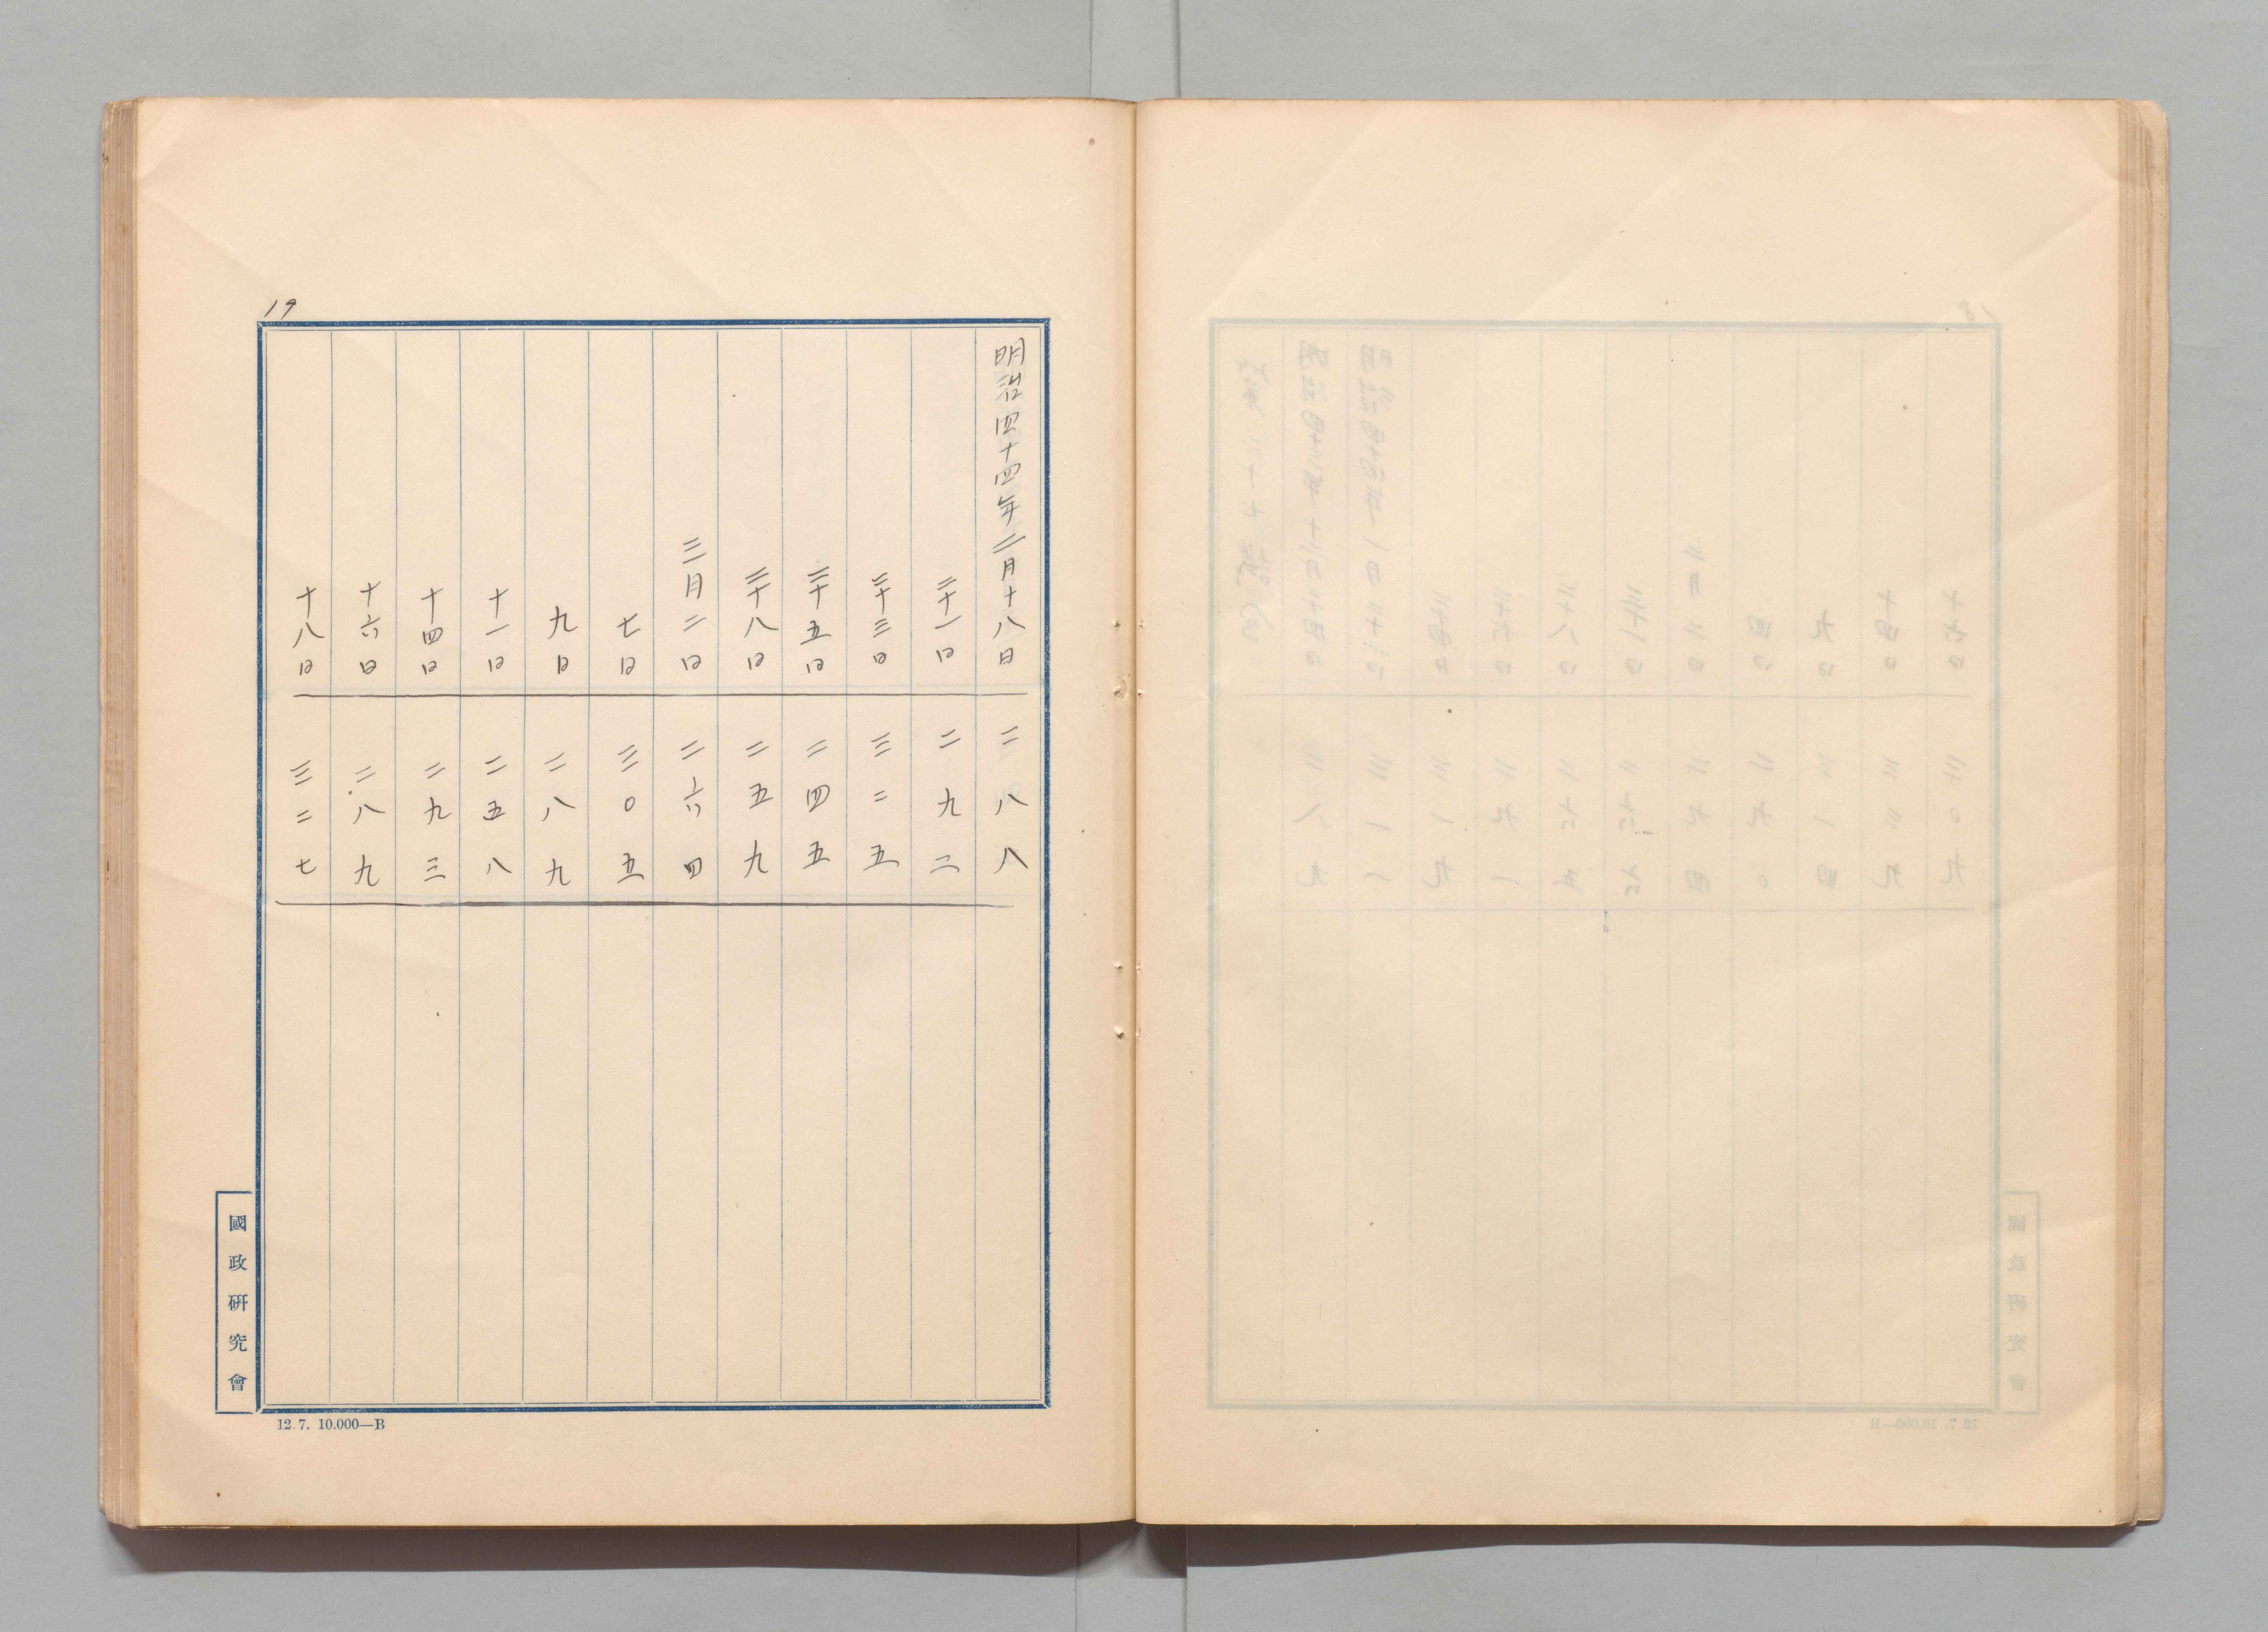 19
明治四十四年二月十八日 二八八
二十一日 二九二
二十三日 三二五
二十五日 二四五
二十八日 二五九
三月二日 二六四
七日 三〇五
九日 二八九
十一日 二五八
十四日 二九三
十六日 二八九
十八日 三二七
國政研究會
12.7. 10.000—B